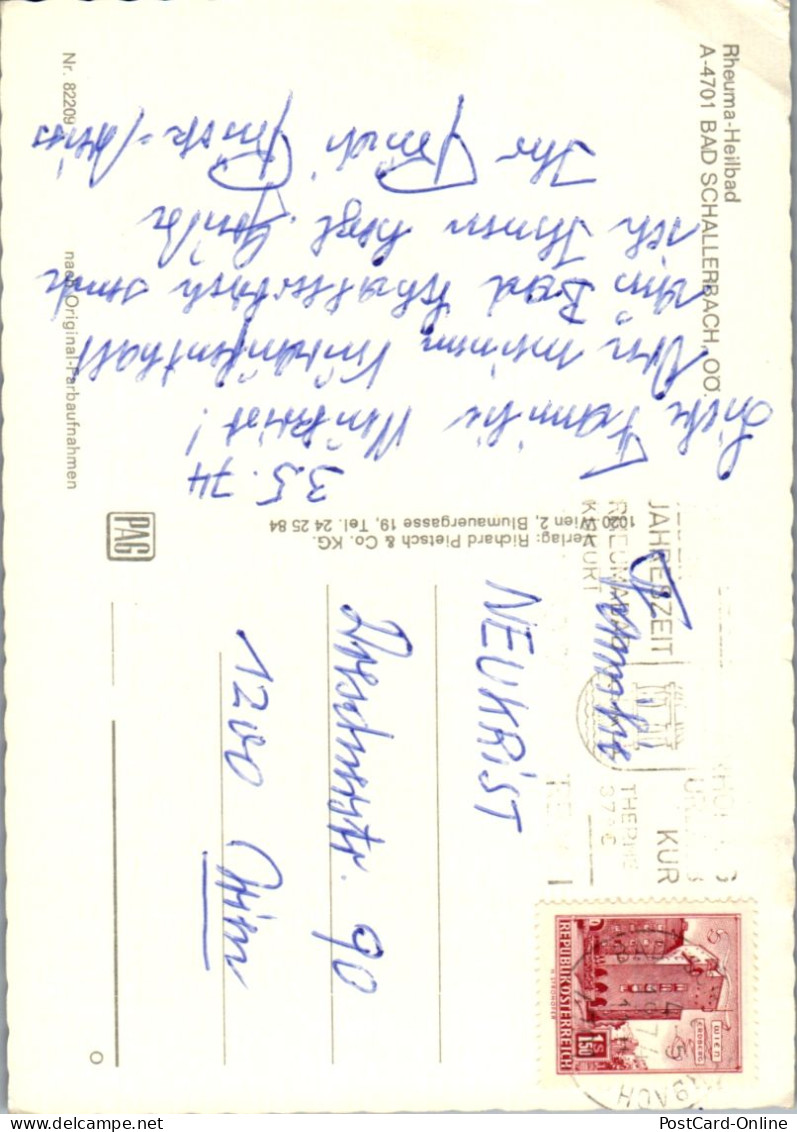 Rheuma-Heilbad
A-4701 BAD SCHALLERBACH, OÖ.
3.5.74
Liebe Familie Neukrist!
Von meinem Kuraufenthalt
in Bad Schallerbach sende
ich Ihnen herzl. Grüße
Ihr
Nr. 82209
nach Original-Farbaufnahmen
PAG
Verlag: Richard Pietsch & Co. KG.
1020 Wien 2, Blumauergasse 19, Tel. 24 25 84
JAHRESZEIT
KUR
THERME
37°C
REPUBLIK ÖSTERREICH
WIEN
ERDBERG
1S
1.50
H. STROHOFER
Familie
NEUKRIST
Dresdnerstr. 90
1200 Wien
PostCard-Online